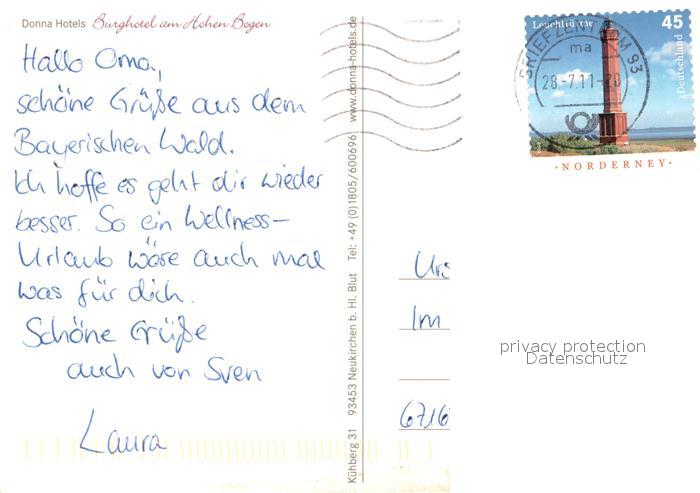 Donna Hotels Burghotel am Hohen Bogen
Hallo Oma,
schöne Grüße aus dem
Bayerischen Wald.
Ich hoffe es geht dir wieder
besser. So ein Wellness-
Urlaub wäre auch mal
was für dich.
Schöne Grüße
auch von Sven
Laura
Kühberg 31 93453 Neukirchen b. Hl. Blut Tel: +49 (0)1805/600696 www.donna-hotels.de
Leuchttürme 45
Deutschland
BRIEFZENTRUM 93
ma
28.-7.11-20
·NORDERNEY·
Urs
Im
6716
privacy protection
Datenschutz